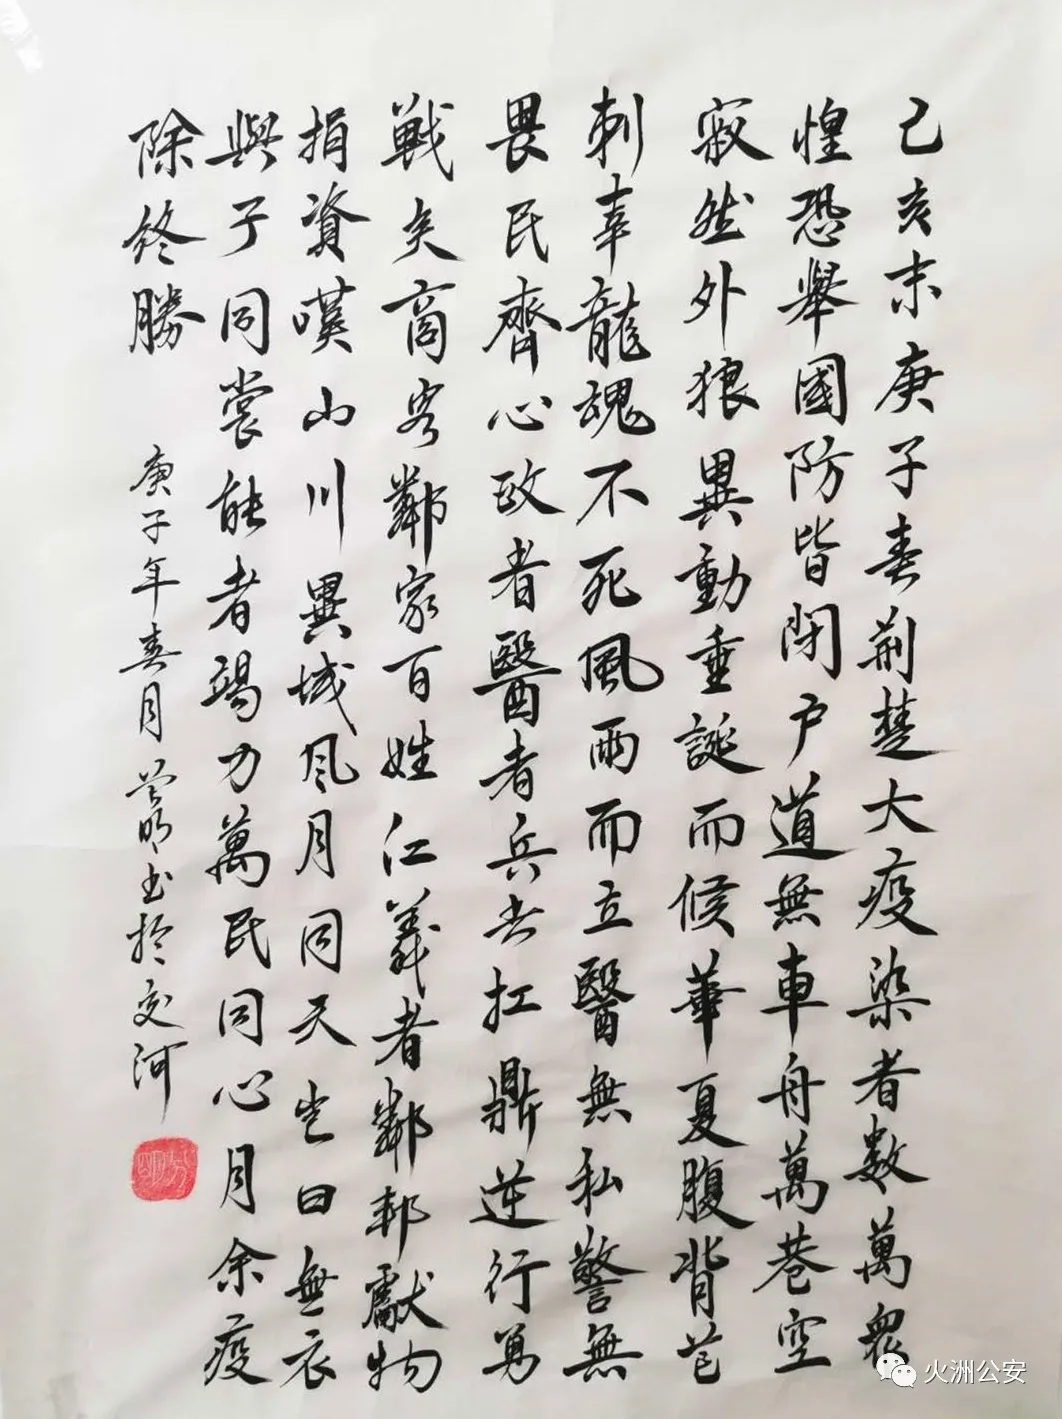 己亥末庚子春荆楚大疫染者數萬眾
惶恐舉國防皆閉户道無車舟萬巷空
寂然外狼異動垂誕而候華夏腹背芒
刺幸龍魂不死風雨而立醫無私警無
畏民齊心政者醫者兵者扛鼎逆行勇
戰矣商客鄰家百姓仁義者鄰邦獻物
捐資嘆山川異域风月同天岂曰無衣
與子同裳能者竭力萬民同心月余疫
除終勝
庚子年春月 明书於交河
火洲公安